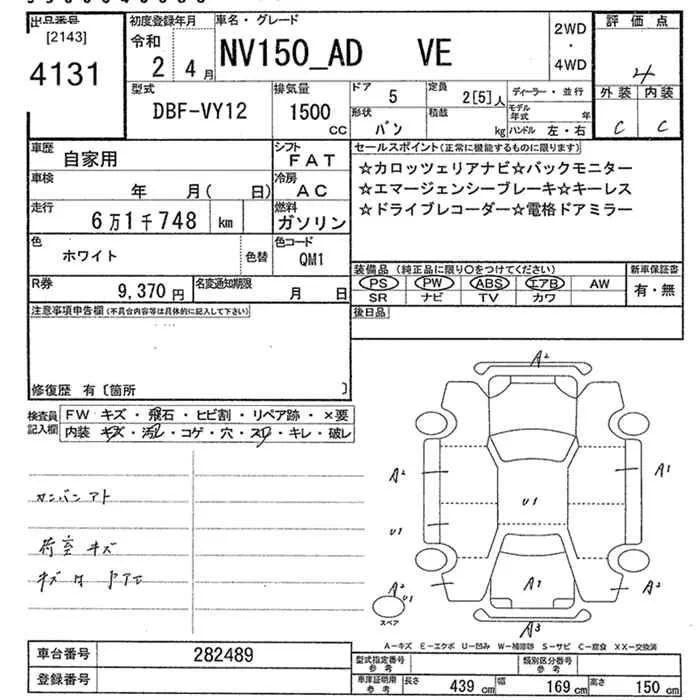 出品番号 初度登録年月 車名・グレード 2WD・4WD 評価点
[2143] 4131 令和 2 4月 NV150_AD VE 4
型式 排気量 ドア 5 定員 2[5]人 ディーラー・並行 外装 内装
DBF-VY12 1500 CC 形状 バン 積載 kg モデル年式 年 ハンドル 左・右 C C
車歴 自家用 シフト FAT セールスポイント(正常に機能するものに限ります)
車検 年 月( 日) 冷房 AC ☆カロッツェリアナビ☆バックモニター
☆エマージェンシーブレーキ☆キーレス
走行 6万1千748 km 燃料 ガソリン ☆ドライブレコーダー☆電格ドアミラー
色 ホワイト 色替 色コード QM1
装備品 (純正品に限り○をつけてください) 新車保証書
R券 9,370円 名変通知期限 月 日 PS PW ABS エアB AW 有・無
SR ナビ TV カワ
注意事項申告欄(不具合内容等は具体的に記入して下さい) 後日品
修復歴 有〔箇所 〕
検査員記入欄 FW キズ・飛石・ヒビ割・リペア跡・×要
内装 キズ・汚レ・コゲ・穴・スレ・キレ・破レ
カンバンアト
荷室キズ
A2
A2 A1
U1
U1
A2 U1 A1 A2
スペア
A3
A-キズ E-エクボ U-凹み W-補修跡 S-サビ C-腐食 XX-交換済
車台番号 282489 型式指定番号 参考 類別区分番号 参考
登録番号 車庫証明用 参考 長さ 439 cm 幅 169 cm 高さ 150 cm